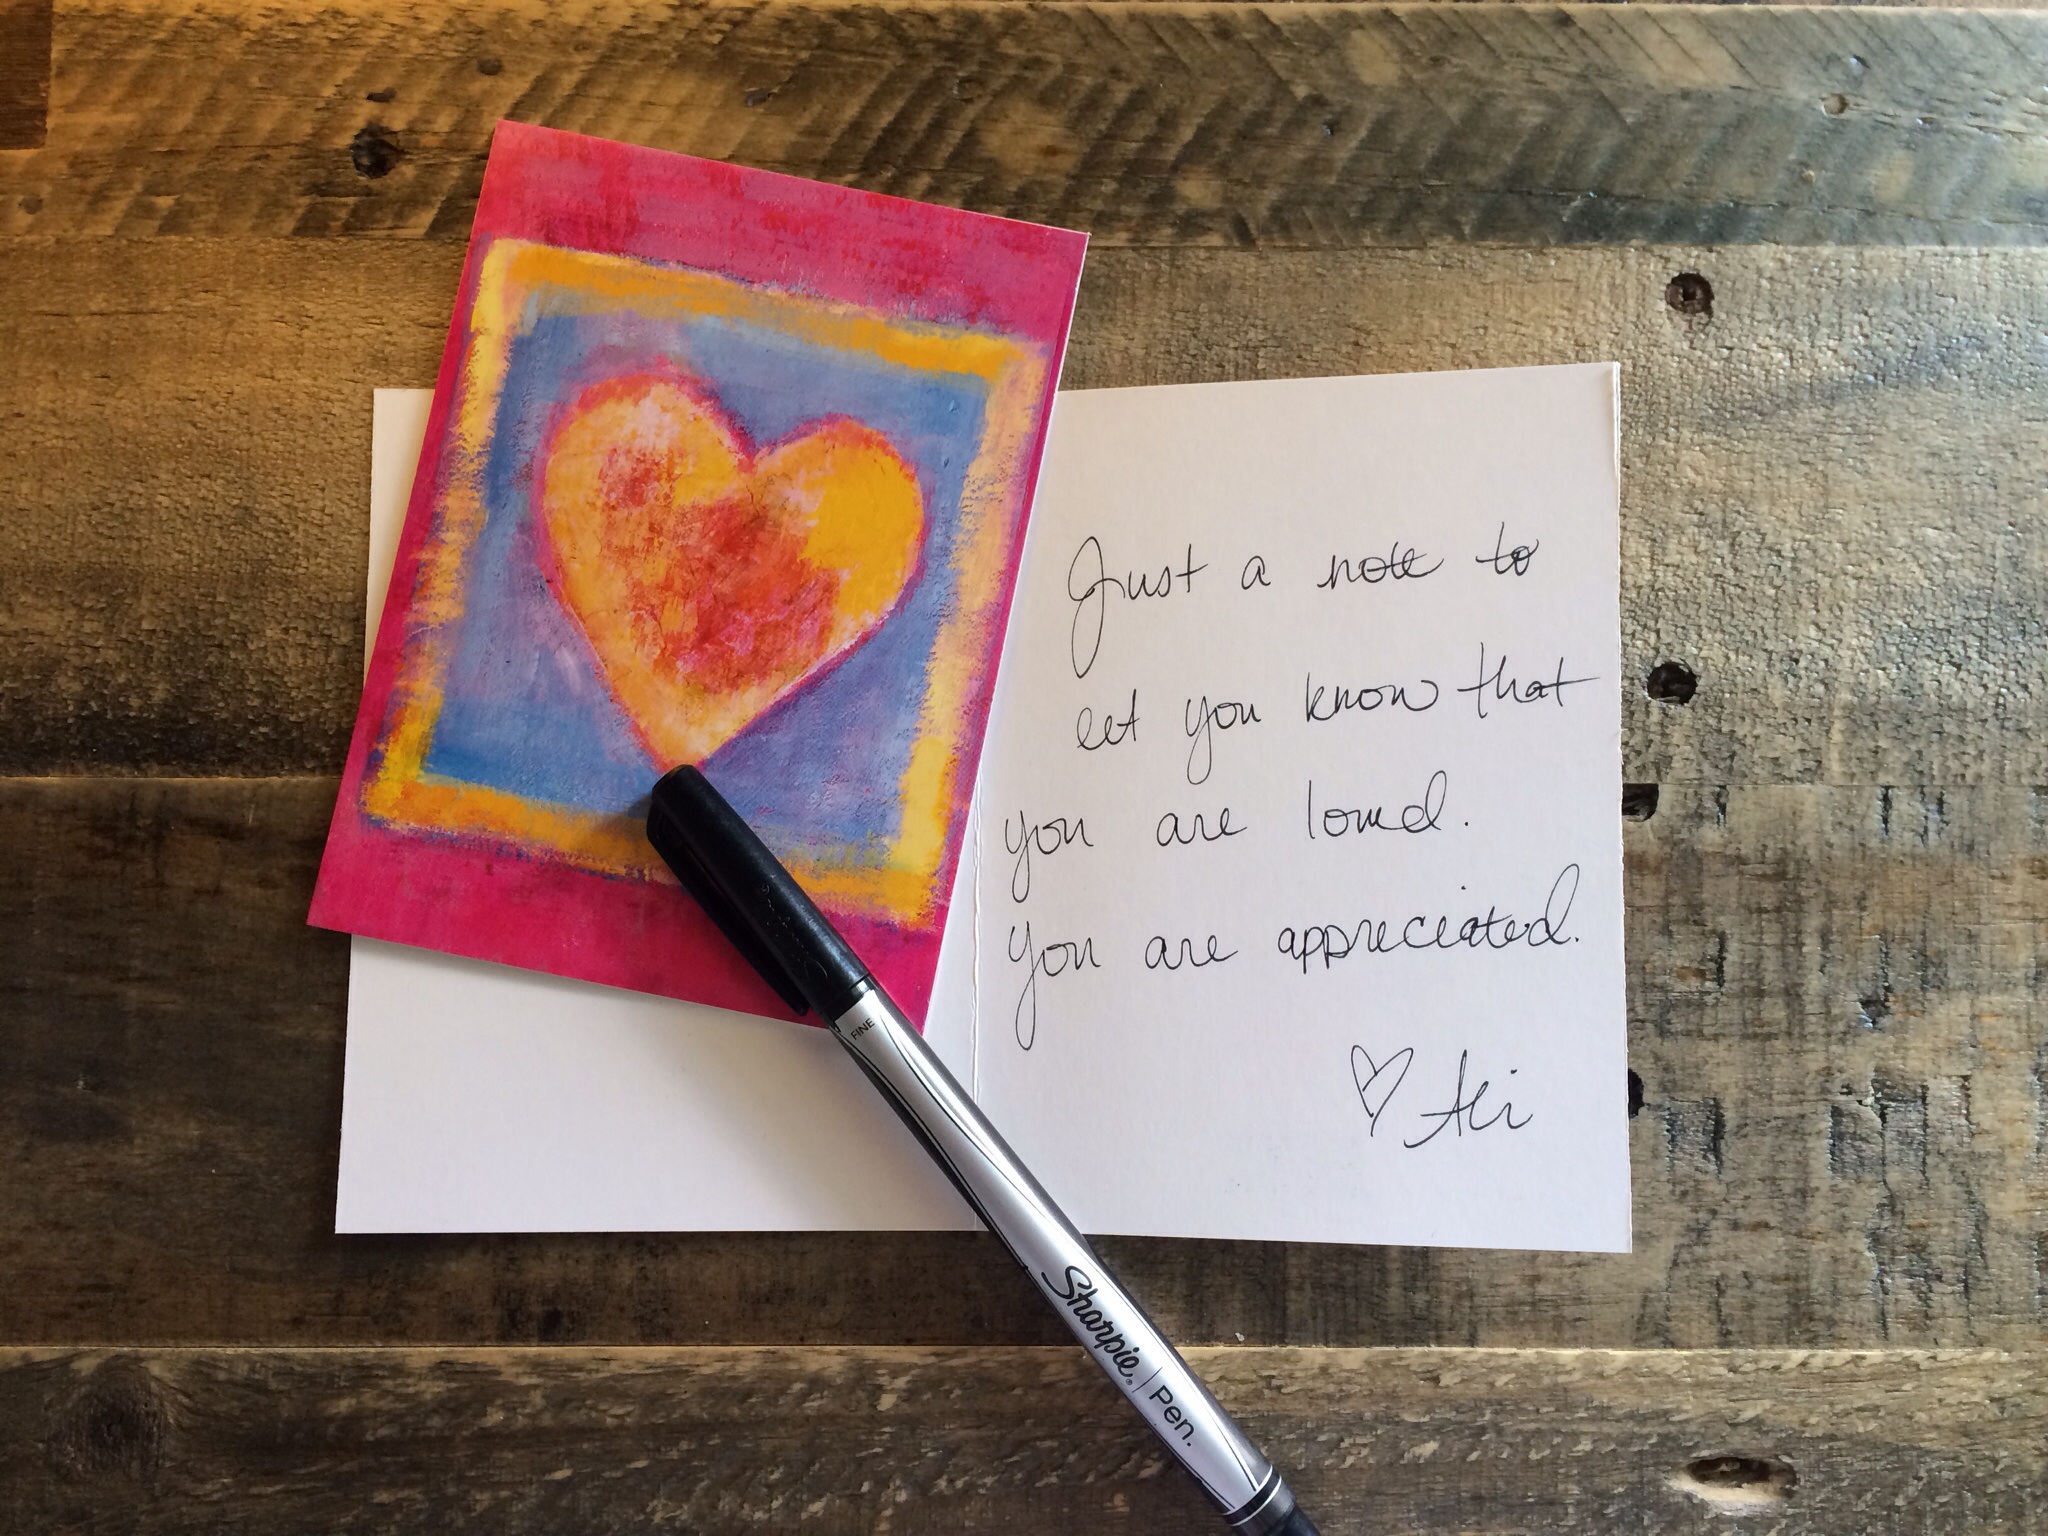 Just a note to
let you know that
you are loved.
you are appreciated.
♡ Ali
FINE
Sharpie® | Pen.